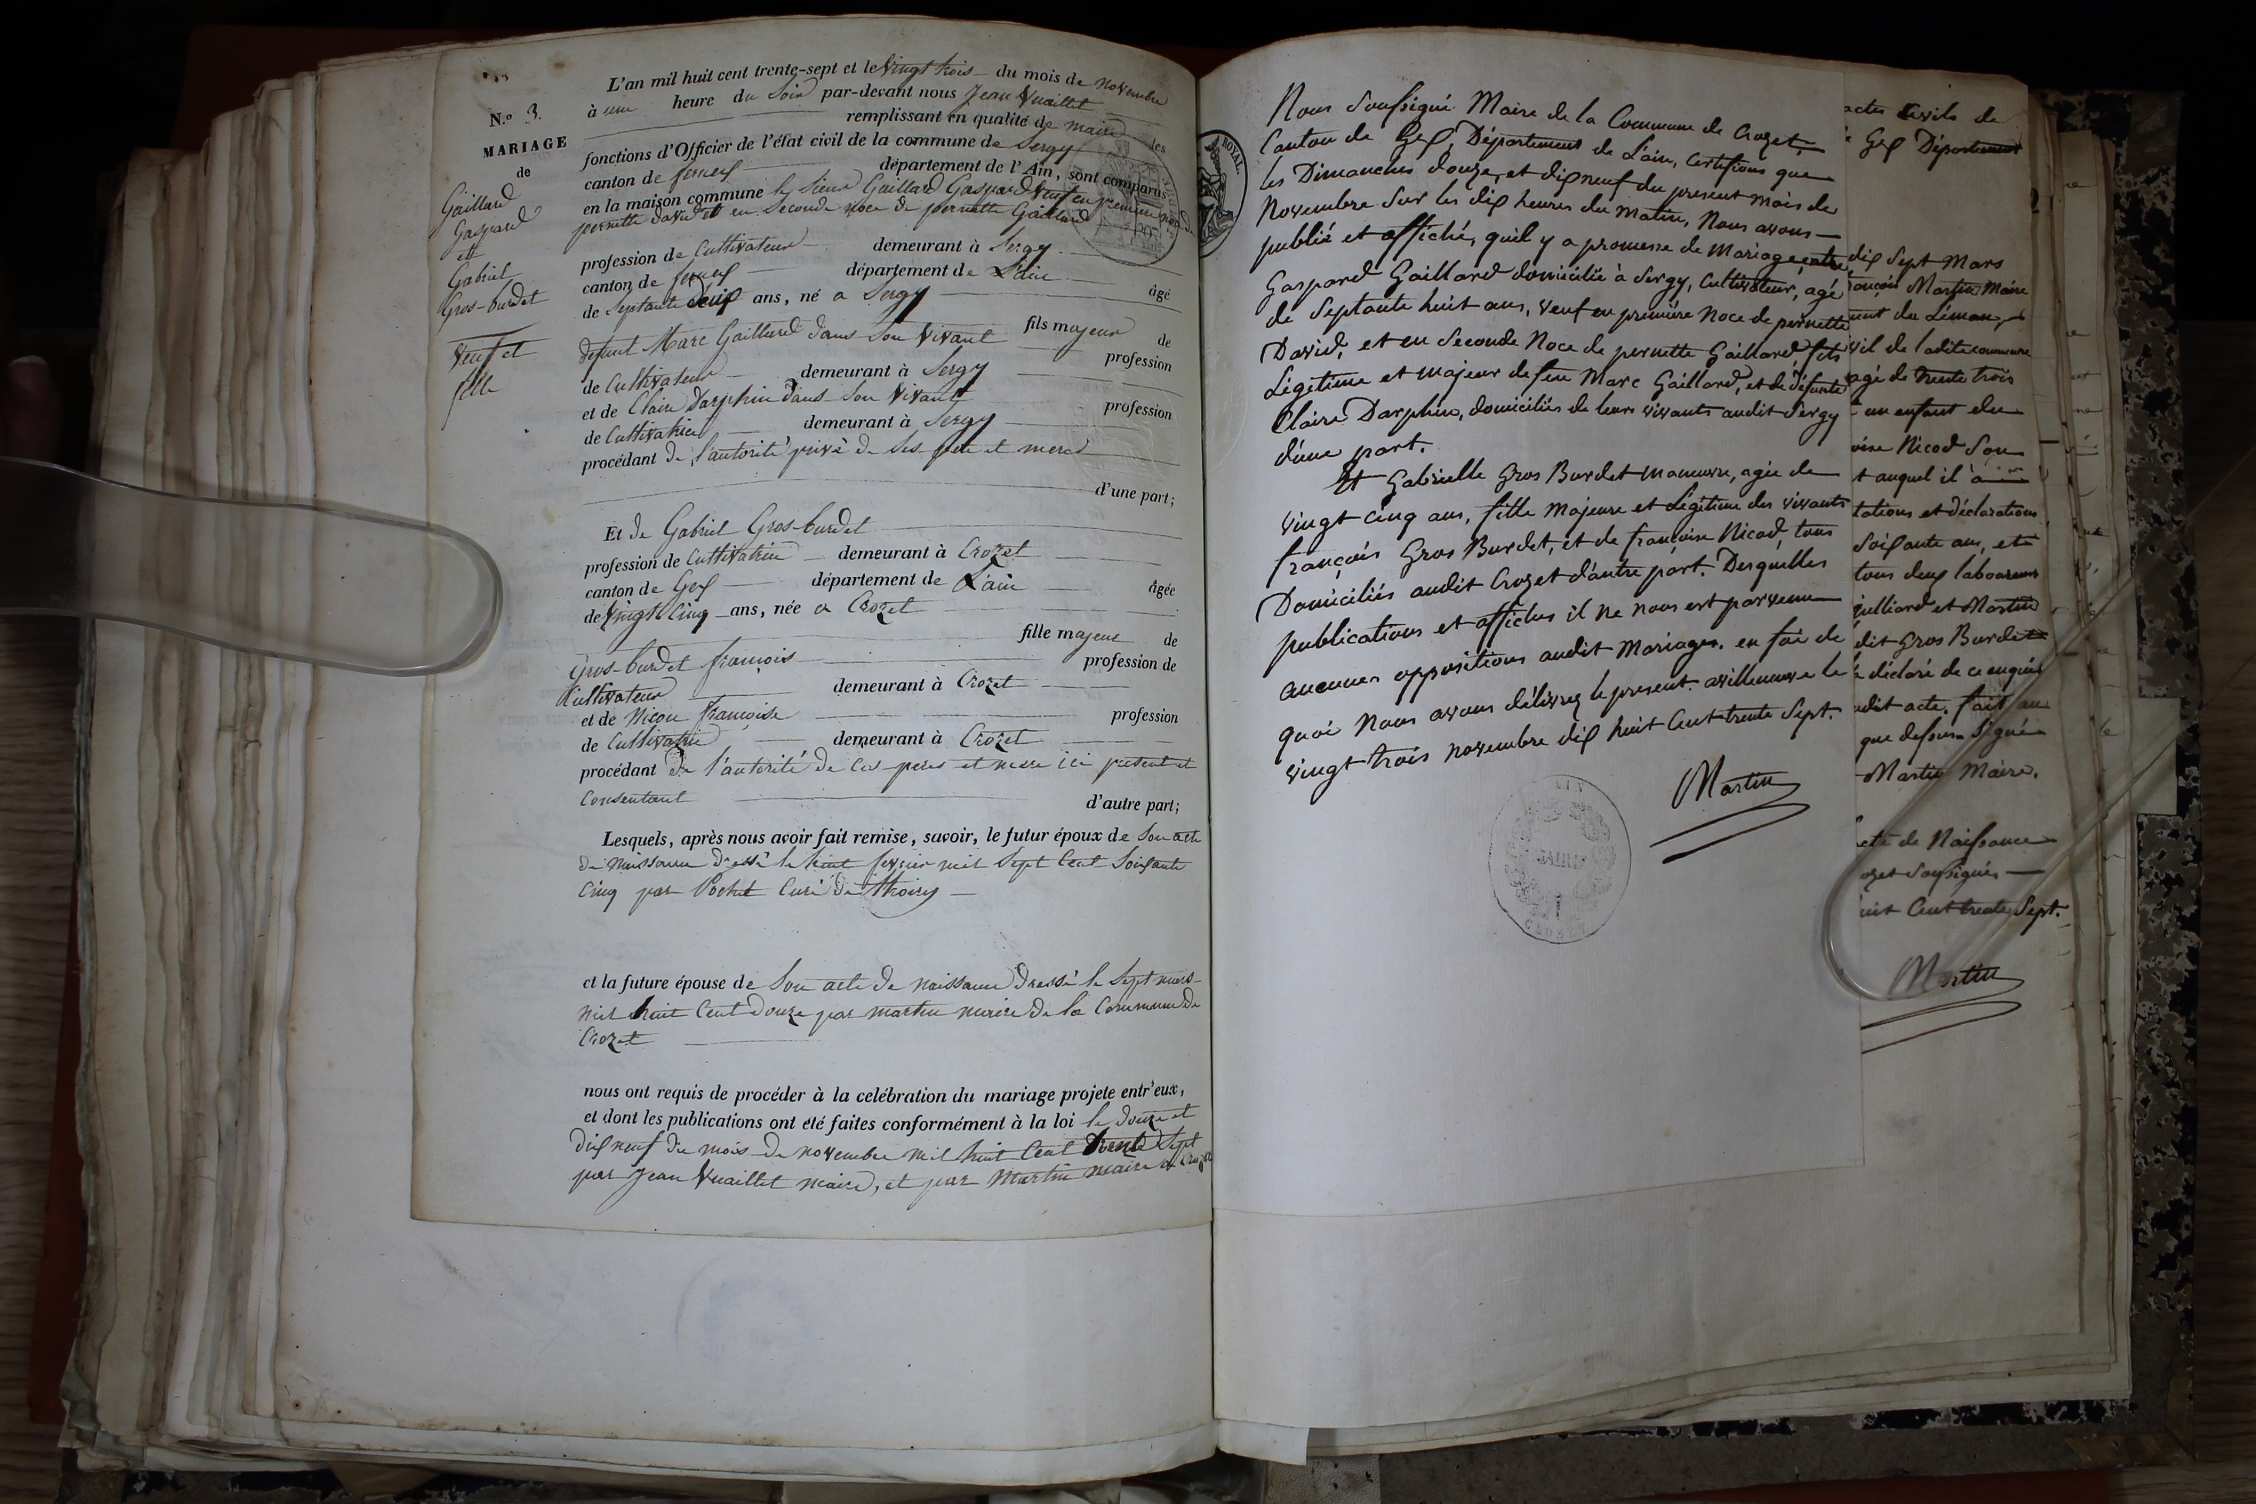 N.º 3.
MARIAGE
de
Gaillard
Gaspard
et
Gabriel
Gros-burdet
Veuf et
fille
L'an mil huit cent trente-sept et le vingt trois du mois de novembre
à une heure du Soir par-devant nous Jean Vuaillet
remplissant en qualité de maire les
fonctions d'Officier de l'état civil de la commune de Sergy
canton de ferney département de l'Ain, sont comparus
en la maison commune le Sieur Gaillard Gaspard Veuf en premiere noce de
pernette david et en Seconde noce de pernette Gaillard
profession de Cultivateur demeurant à Sergy
canton de ferney département de L'ain
âgé
de Septante deux ans, né a Sergy
fils majeur de
defunt Marc Gaillard dans Son Vivant profession
de Cultivateur demeurant à Sergy
et de Claire Darphin dans Son Vivant profession
de Cultivatrice demeurant à Sergy
procédant de l'autorité privé de Ses pere et mere
d'une part;
Et de Gabriel Gros-burdet
profession de Cultivatrice demeurant à Crozet
canton de Gex département de L'ain âgée
de Vingt Cinq ans, née a Crozet
fille majeur de
Gros-burdet françois profession de
Cultivateur demeurant à Crozet
et de Nicou françoise profession
de Cultivatrice demeurant à Crozet
procédant de l'autorité de Ces peres et mere ici présent et
Consentant d'autre part;
Lesquels, après nous avoir fait remise, savoir, le futur époux de Son acte
de naissance dressé le huit fevrier mil Sept Cent Soixante
Cinq par Pochet Curé de Thoiry
et la future épouse de Son acte de naissance dressé le Sept mars
mil huit Cent douze par martin maire de la Commune de
Crozet
nous ont requis de procéder à la celébration du mariage projete entr'eux,
et dont les publications ont été faites conformément à la loi le douze et
dix neuf du mois de novembre mil huit Cent trente Sept
par Jean Vuaillet maire, et par Martin maire de Crozet
ROYAL
Nous Soussigné Maire de la Commune de Crozet,
Canton de Gex, Département de L'ain, Certifions que
les Dimanches douze, et dix neuf du present mois de
Novembre Sur les dix heures du matin, Nous avons
publié et affiché, qu'il y a promesse de Mariage entre
Gaspard Gaillard domicilié à Sergy, Cultivateur, agé
de Septante huit ans, Veuf en première Noce de pernette
David, et en Seconde Noce de pernette Gaillard, fils
Légitime et majeur de feu Marc Gaillard, et de défunte
Claire Darphin, domiciliés de leurs vivants audit Sergy
d'une part.
Et Gabrielle Gros Burdet manœuvre, agée de
vingt cinq ans, fille majeure et Légitime des vivants
françois Gros Burdet, et de françoise Nicod, tous
Domiciliés audit Crozet d'autre part. Desquelles
publications et affiches il ne nous est parvenu
aucunes oppositions audit Mariages. en foi de
quoi Nous avons délivrez le present. avilleneuve le
vingt trois novembre dix huit Cent trente Sept.
Martin
AIN
MAIRIE
CROZET
actes Civils de
Gex Département
dix Sept Mars
françois Martin Maire
ment du Leman,
vil de ladite commune
agé de trente trois
un enfant du
oise Nicod Son
t auquel il à
tations et déclarations
Soixante ans, et
tous deux laboureurs
julliard et Martin
dit Gros Burdet
déclaré de ce enquis
udit acte. fait au
que dessus. Signé
Martin Maire.
acte de Naissance
ozet Soussignés
uit Cent trente Sept.
Martin